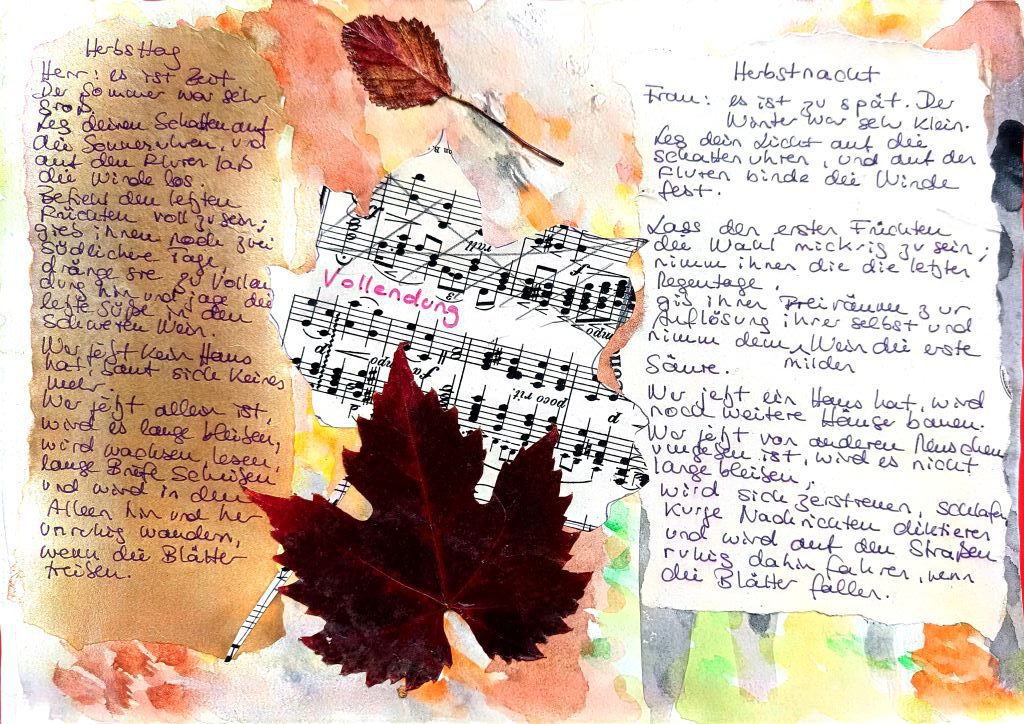 Herbsttag
Herr: es ist Zeit
Der Sommer war sehr
groß
Leg deinen Schatten auf
die Sonnenuhren, und
auf den Fluren laß
die Winde los.
Befiehl den letzten
Früchten voll zu sein;
gieb ihnen noch zwei
südlichere Tage
dränge sie zu Vollen
dung hin und jage die
letzte Süße in den
schweren Wein.
Wer jetzt kein Haus
hat, baut sich keines
mehr.
Wer jetzt allein ist,
wird es lange bleiben,
wird wachen, lesen,
lange Briefe schreiben
und wird in den
Alleen hin und her
unruhig wandern,
wenn die Blätter
treiben.
Vollendung
rall
poco rit.
p
p
Herbstnacht
Frau: es ist zu spät. Der
Winter war sehr klein.
Leg dein Licht auf die
Schattenuhren, und auf den
Fluren binde die Winde
fest.
Lass den ersten Früchten
die Wahl mickrig zu sein;
nimm ihnen die die letzten
Regentage,
gib ihnen Freiräume zur
Auflösung ihrer selbst und
nimm dem Wein die erste
milden
Säure.
Wer jetzt ein Haus hat, wird
noch weitere Häuser bauen.
Wer jetzt von anderen Menschen
umgeben ist, wird es nicht
lange bleiben,
wird sich zerstreuen, schlafen
kurze Nachrichten diktieren
und wird auf den Straßen
ruhig dahin fahren, wenn
die Blätter fallen.